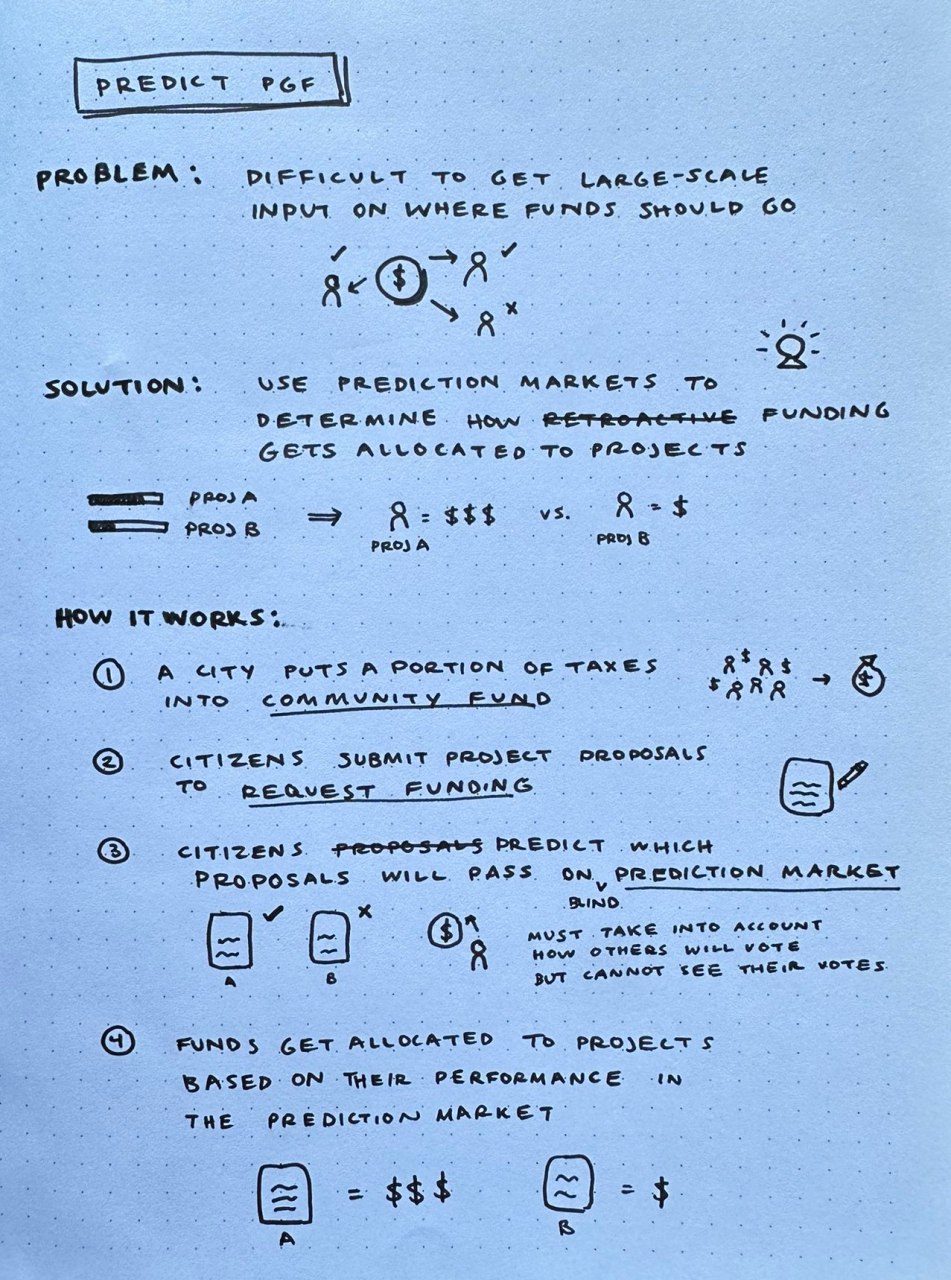 PREDICT PGF
PROBLEM: DIFFICULT TO GET LARGE-SCALE
INPUT ON WHERE FUNDS SHOULD GO
$
SOLUTION: USE PREDICTION MARKETS TO
DETERMINE HOW RETROACTIVE FUNDING
GETS ALLOCATED TO PROJECTS
PROJ A
PROJ B
⇒ = $$$ vs. = $
PROJ A PROJ B
HOW IT WORKS:
① A CITY PUTS A PORTION OF TAXES
INTO COMMUNITY FUND
$ $
$ → $
② CITIZENS SUBMIT PROJECT PROPOSALS
TO REQUEST FUNDING
③ CITIZENS PROPOSALS PREDICT WHICH
PROPOSALS WILL PASS ON PREDICTION MARKET
BLIND
A B $
MUST TAKE INTO ACCOUNT
HOW OTHERS WILL VOTE
BUT CANNOT SEE THEIR VOTES
④ FUNDS GET ALLOCATED TO PROJECTS
BASED ON THEIR PERFORMANCE IN
THE PREDICTION MARKET
= $$$ = $
A B